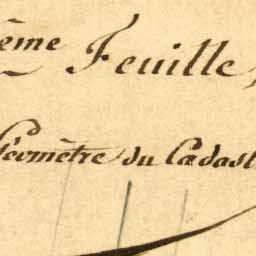 ème Feuille
Géomètre du Cadast